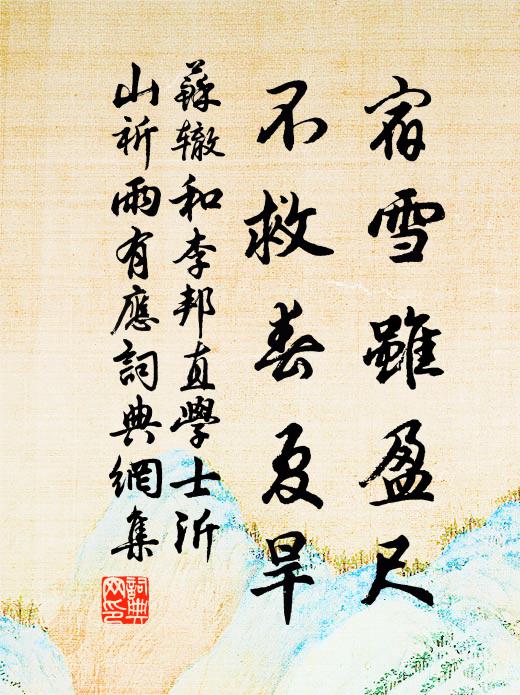 宿雪雖盈尺
不救春夏旱
蘇辙和李邦直學士沂
山祈雨有應詞典網集
詞典网印